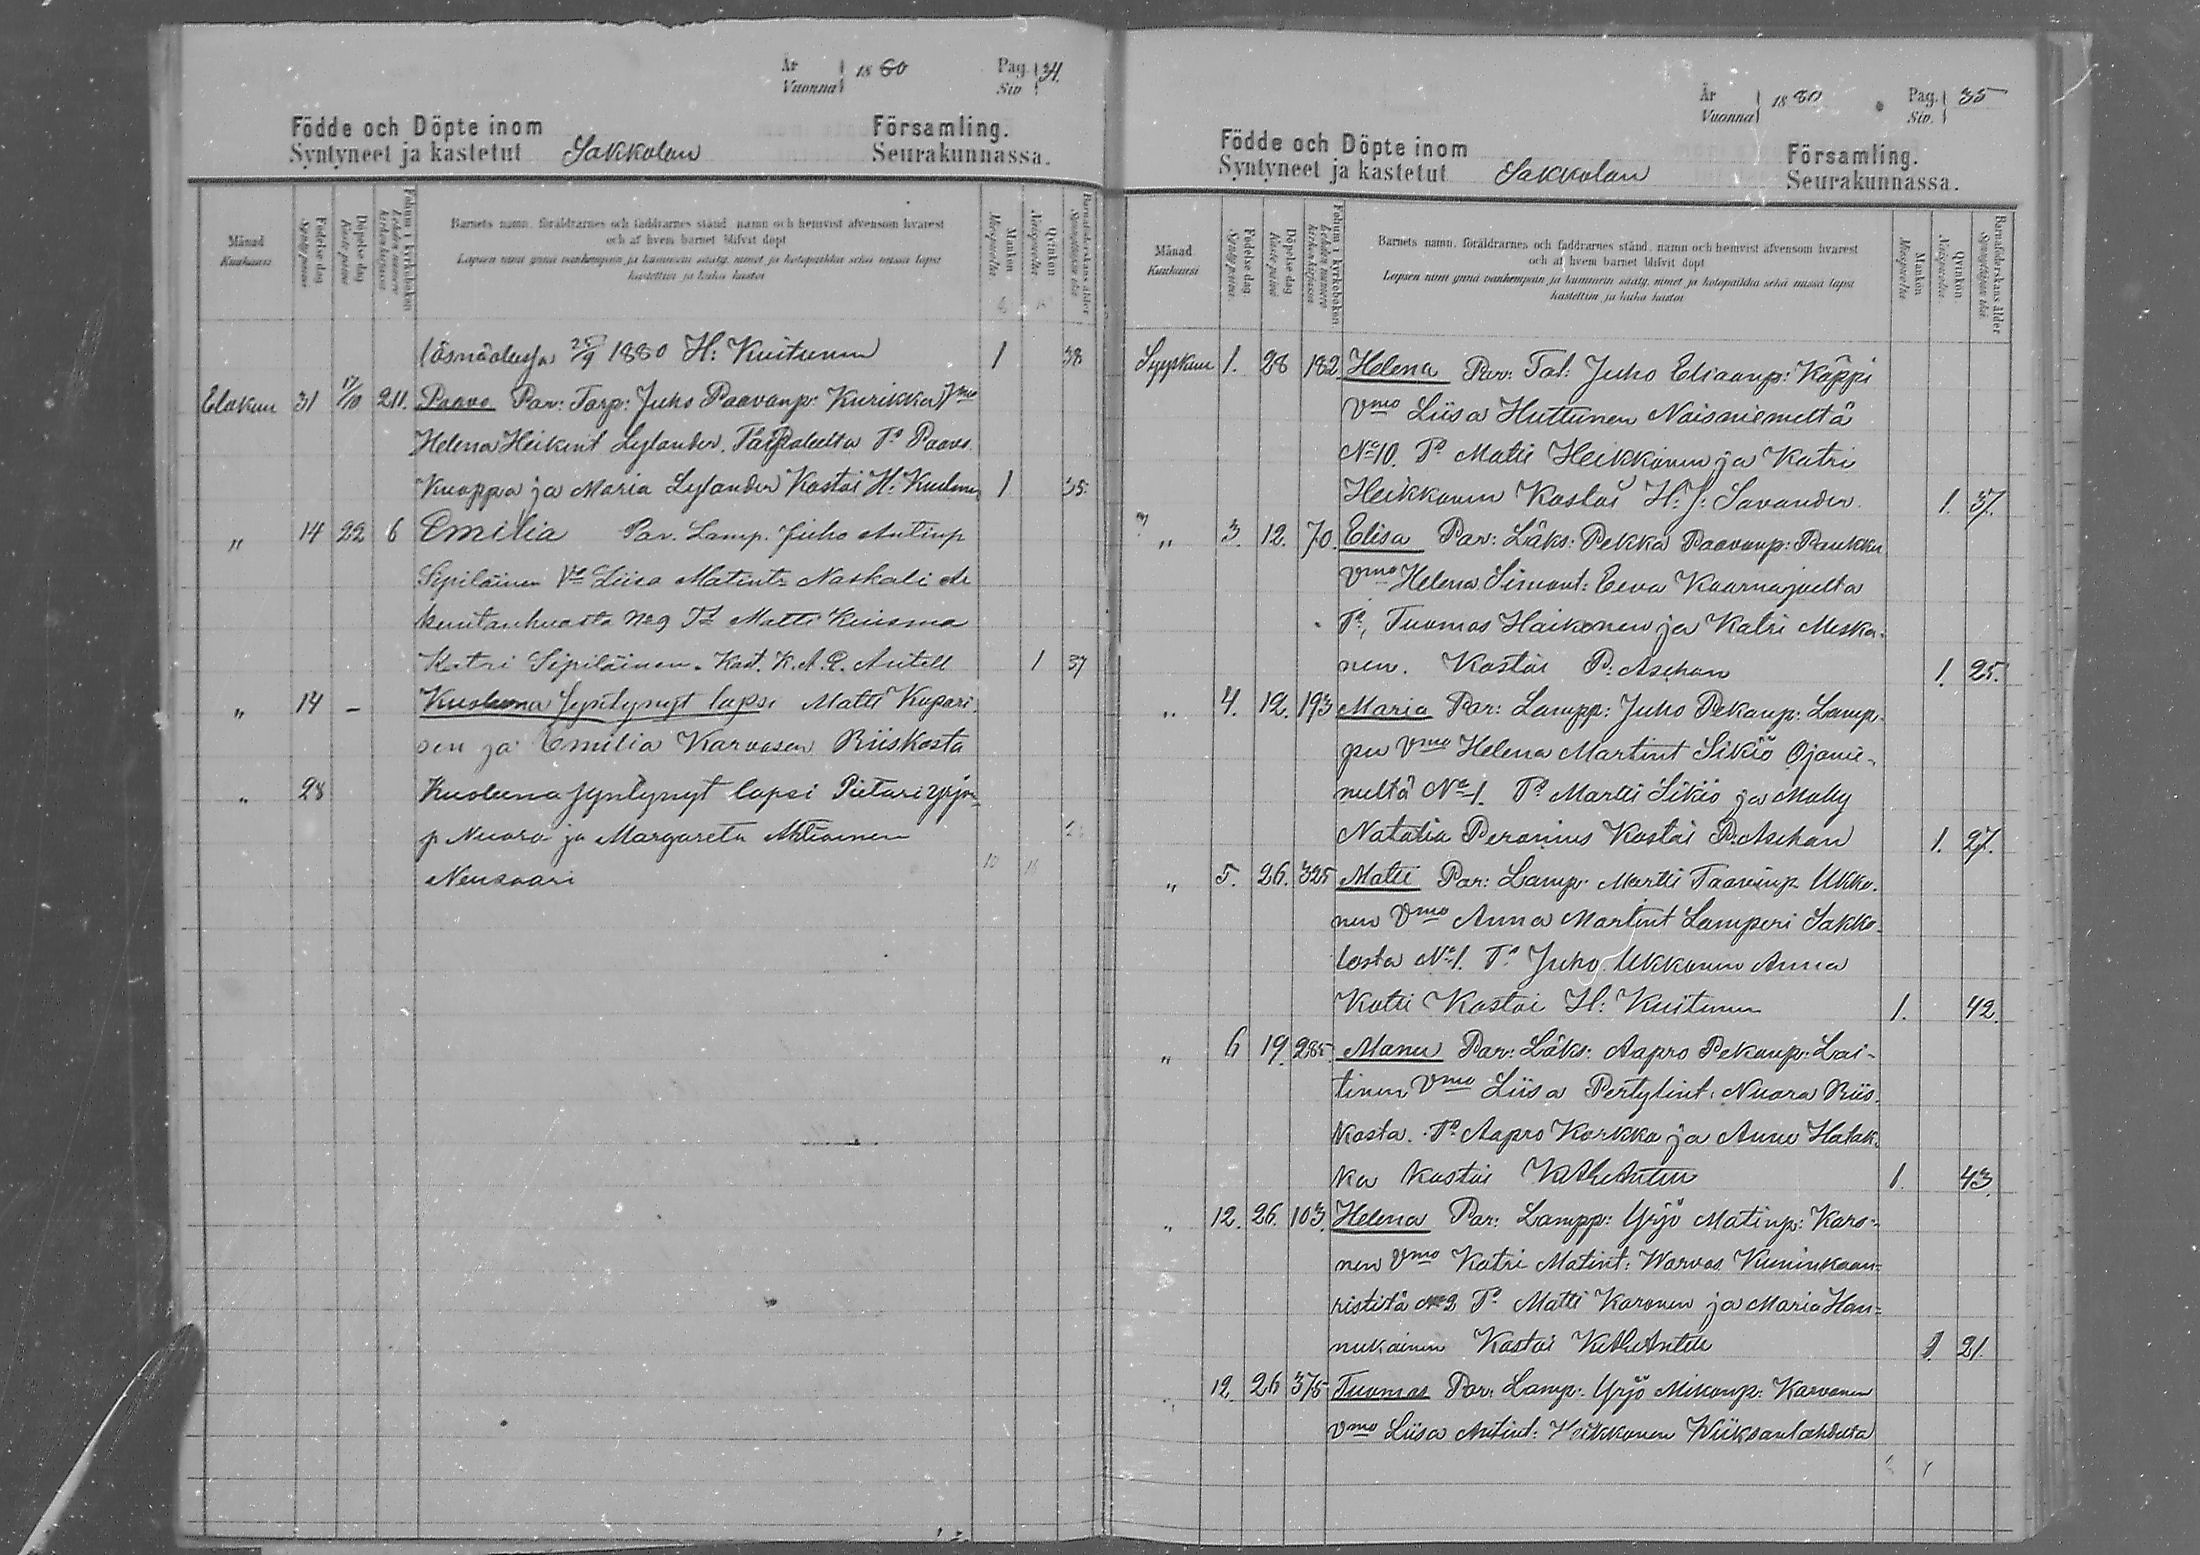 År Vuonna 1880 Pag. Siv 34.
Födde och Döpte inom Församling.
Syntyneet ja kastetut Sakkolan Seurakunnassa.
Månad Kuukausi
Födelse dag Synty päivä
Döpelse dag Kaste päivä
Folium i kyrkoboken Lehden numero kirkonkirjassa
Barnets namn, föräldrarnes och faddrarnes stånd, namn och hemvist äfvensom hvarest
och af hvem barnet blifvit döpt
Lapsen nimi ynnä vanhempain ja kummein sääty, nimet ja kotopaikka sekä missä lapsi
kastettiin ja kuka kastoi
Mankön Miespuolta
Qvinkön Naispuolta
Barnaföderskans ålder Synnyttäjän ikä
25/9 1880 H: Kuitunen 1 38
Elokun 31 17/10 211. Paavo Par: Torp: Juho Paavonp: Kurikka Vmo
Helena Heikint Lylander. Ts Paavo
Kuoppa ja Maria Lylander Kastoi H: 1 35
„ 14 22 6 Emilia Par. Lamp. Juho Antinp
Sipiläinen Vo Liisa Matint: Naskali
No 9 Ts Matti Kiiisma
Katri Sipiläinen. Kast. K. A. R. Antell 1 37
„ 14 – Kuoleena syntynyt lapsi Matti Kupari
sen ja Emilia Karvosen Riiskasta
„ 28 Kuoleena syntynyt lapsi Pietari Yrjön
p Nuora ja Margareta Ahtiainen
Neusaari
År Vuonna 1880 Pag. Siv. 35
Födde och Döpte inom Församling.
Syntyneet ja kastetut Sakkolan Seurakunnassa.
Månad Kuukausi
Födelse dag Synty päivä
Döpelse dag Kaste päivä
Folium i kyrkoboken Lehden numero kirkonkirjassa
Barnets namn, föräldrarnes och faddrarnes stånd, namn och hemvist äfvensom hvarest
och af hvem barnet blifvit döpt
Lapsen nimi ynnä vanhempain ja kummein sääty, nimet ja kotopaikka sekä missä lapsi
kastettiin ja kuka kastoi
Mankön Miespuolta
Qvinkön Naispuolta
Barnaföderskans ålder Synnyttäjän ikä
Syyskuu 1. 28 182 Helena Par: Tal: Juho Eliaanp: Käppi
Vmo Liisa Huttunen Noisniemeltä
No 10. Ts Matti Heikkonen ja Katri
Heikkonen Kastoi H: J: Savander. 1. 37.
„ 3. 12. 70. Elisa Par: Läks: Pekka Paavonp: Paukku
Vmo Helena Simont: Eeva Kaarnajoelta
Ts, Tuomas Haikonen ja Katri Meska-
nen. Kastoi P: Aschan 1. 25.
„ 4. 12. 193 Maria Par: Lampp: Juho Pekanp: Lamp-
pu Vmo Helena Martint Sikiö Ojanie-
meltä No 1. Ts Martti Sikiö ja Maly
Natalia Peranius Kastoi P. Aschan 1. 27.
„ 5. 26. 325 Matti Par: Lamp. Martti Taavinp. Ukko-
nen Vmo Anna Martint Lamperi Sakko-
lasta No 1. Ts Juho Ukkonen Anna
Katri Kastoi H: Kuitunen 1. 42.
„ 6 19. 285 Manu Par: Läks: Aapro Pekanp: Lai-
tinen Vmo Liisa Pertylint: Nuora Riis-
kasta. Ts Aapro Korkka ja Anna Hatak-
ka Kastoi 1. 43.
„ 12. 26. 103. Helena Par: Lampp: Yrjö Matinp: Karo-
nen Vmo Katri Matint: Warvas Kuninkaan-
ristiltä No 2 Ts Matti Karonen ja Maria Han-
nukainen Kastoi 1. 21.
„ 12. 26 375 Tuomas Par: Lamp: Yrjö Mikonp: Karvonen
Vmo Liisa Antint: Heikkonen Wiiksanlahdelta